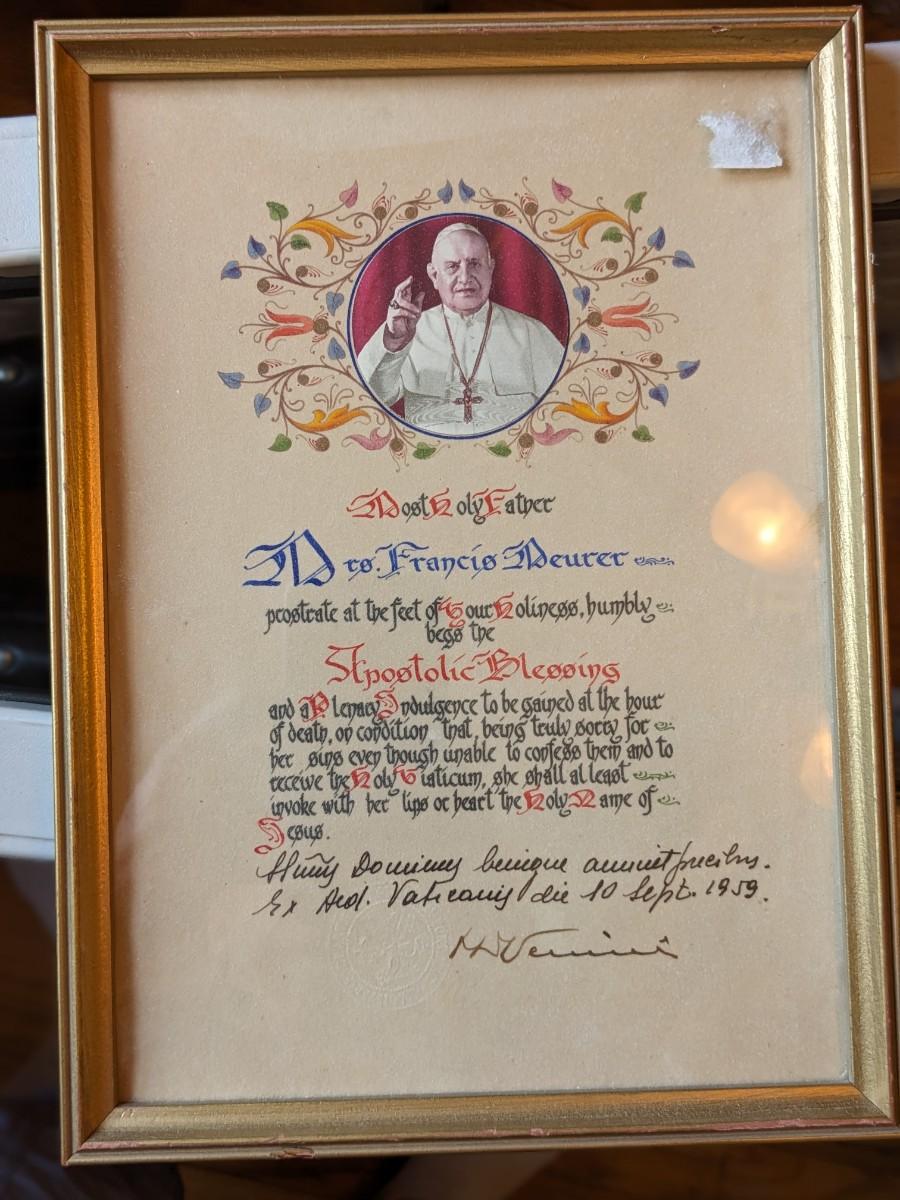 Most Holy Father
Mrs. Francis Meurer
prostrate at the feet of Your Holiness, humbly
begs the
Apostolic Blessing
and a Plenary Indulgence to be gained at the hour
of death, on condition that, being truly sorry for
her sins even though unable to confess them and to
receive the Holy Viaticum, she shall at least
invoke with her lips or heart the Holy Name of
Jesus.
Dominus benigne annuit precibus.
Ex Aed. Vaticanis die 10 Sept. 1959.